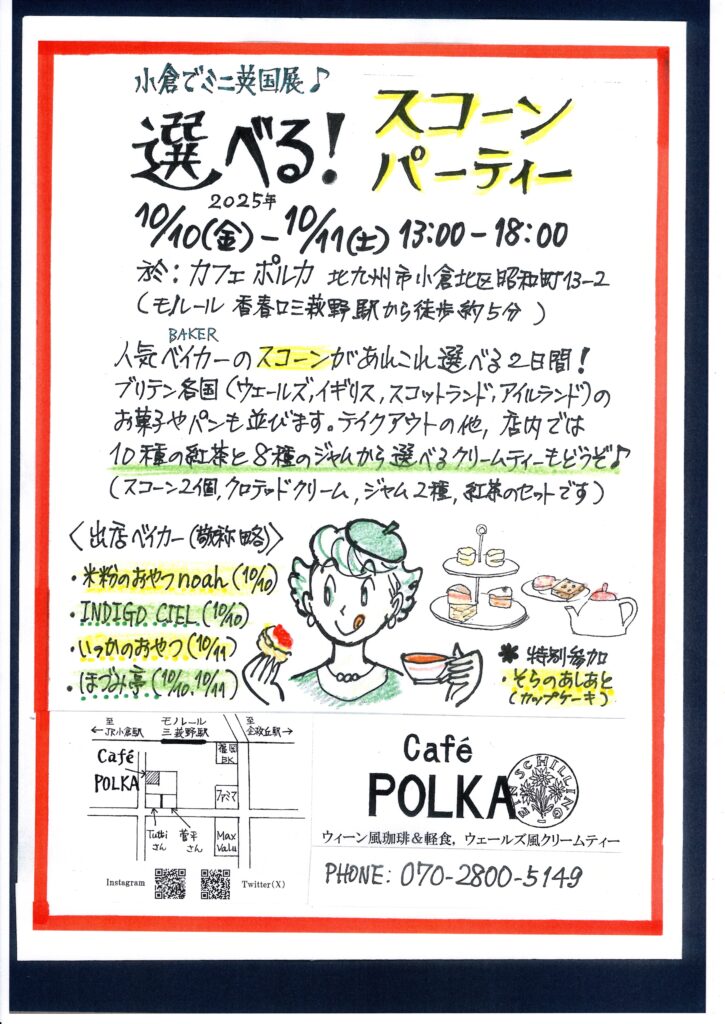 小倉でミニ英国展♪
選べる! スコーンパーティー
2025年
10/10(金)-10/11(土) 13:00-18:00
於: カフェ ポルカ 北九州市小倉北区昭和町13-2
(モノレール 香春口三萩野駅から徒歩約5分 )
BAKER
人気ベイカーのスコーンがあれこれ選べる2日間!
ブリテン各国(ウェールズ,イギリス,スコットランド,アイルランド)の
お菓子やパンも並びます。テイクアウトの他, 店内では
10種の紅茶と8種のジャムから選べるクリームティーもどうぞ♪
(スコーン2個,クロテッドクリーム,ジャム2種,紅茶のセットです)
〈出店ベイカー(敬称略)〉
・米粉のおやつnoah(10/10)
・INDIGO CIEL(10/10)
・いつかのおやつ(10/11)
・ほづみ亭(10/10,10/11)
* 特別参加
・そらのあしあと
(カップケーキ)
至
←JR小倉駅
モノレール
三萩野駅
至
企救丘駅→
Café
POLKA
福岡
BK
ファミマ
Max
Valu
Tutti
さん
菅平
さん
Instagram
Twitter(X)
Café
POLKA
EIN SCHILLING
ウィーン風珈琲&軽食, ウェールズ風クリームティー
PHONE: 070-2800-5149